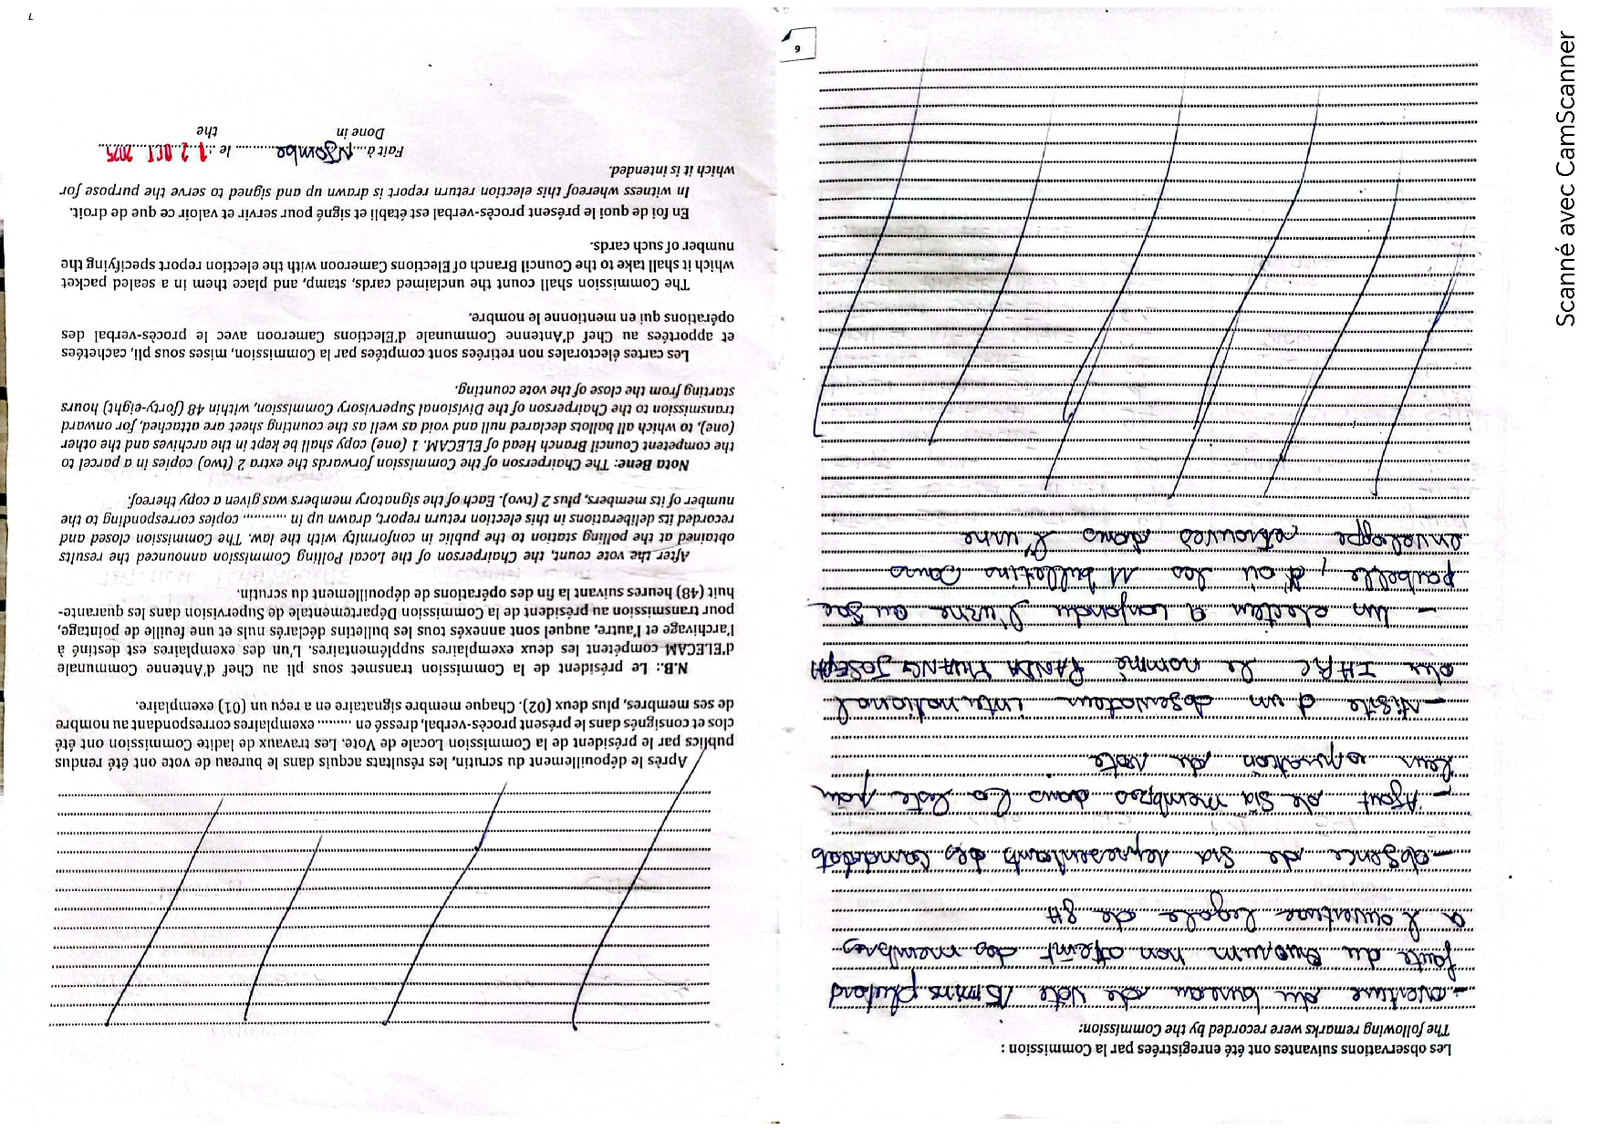 Les observations suivantes ont été enregistrées par la Commission :
The following remarks were recorded by the Commission:
- overture du bureau de vote 15 mins plutard
faute du Quorum non atteint des membres
a l'ouverture legale de 8H
- absence de Six representants des Candidats
- Ajout de Six membres dans la liste pour
leur operation du vote
- Visite d'un observateur international
des le nommé JOSEPH
- Un electeur a l'urne au Sac
poubelle, d'où les 11 bulletins Sans
enveloppe retrouvés dans l'urne
6
Après le dépouillement du scrutin, les résultats acquis dans le bureau de vote ont été rendus
publics par le président de la Commission Locale de Vote. Les travaux de ladite Commission ont été
clos et consignés dans le présent procès-verbal, dressé en ......... exemplaires correspondant au nombre
de ses membres, plus deux (02). Chaque membre signataire en a reçu un (01) exemplaire.
N.B.: Le président de la Commission transmet sous pli au Chef d'Antenne Communale
d'ELECAM compétent les deux exemplaires supplémentaires. L'un des exemplaires est destiné à
l'archivage et l'autre, auquel sont annexés tous les bulletins déclarés nuls et une feuille de pointage,
pour transmission au président de la Commission Départementale de Supervision dans les quarante-
huit (48) heures suivant la fin des opérations de dépouillement du scrutin.
After the vote count, the Chairperson of the Local Polling Commission announced the results
obtained at the polling station to the public in conformity with the law. The Commission closed and
recorded its deliberations in this election return report, drawn up in ......... copies corresponding to the
number of its members, plus 2 (two). Each of the signatory members was given a copy thereof.
Nota Bene: The Chairperson of the Commission forwards the extra 2 (two) copies in a parcel to
the competent Council Branch Head of ELECAM. 1 (one) copy shall be kept in the archives and the other
(one), to which all ballots declared null and void as well as the counting sheet are attached, for onward
transmission to the Chairperson of the Divisional Supervisory Commission, within 48 (forty-eight) hours
starting from the close of the vote counting.
Les cartes électorales non retirées sont comptées par la Commission, mises sous pli, cachetées
et apportées au Chef d'Antenne Communale d'Elections Cameroon avec le procès-verbal des
opérations qui en mentionne le nombre.
The Commission shall count the unclaimed cards, stamp, and place them in a sealed packet
which it shall take to the Council Branch of Elections Cameroon with the election report specifying the
number of such cards.
En foi de quoi le présent procès-verbal est établi et signé pour servir et valoir ce que de droit.
In witness whereof this election return report is drawn up and signed to serve the purpose for
which it is intended.
Fait à Njombe le 12 OCT 2025
Done in the
7
Scanné avec CamScanner